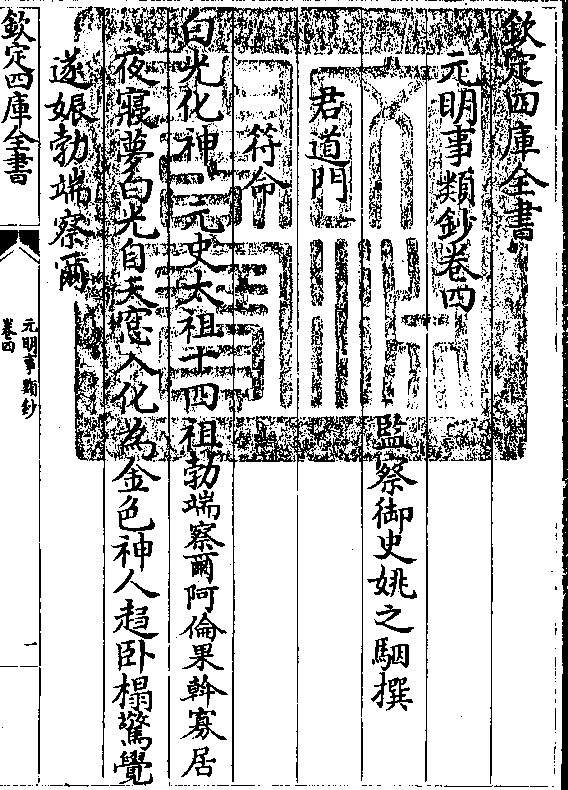 欽定四庫全書
元明事類鈔卷四
監察御史姚之駰撰
君道門一
符命
白光化神 元史太祖十四祖勃端察爾阿倫果斡寡居
夜寢夢白光自天窓入化為金色神人趋卧榻驚覺
遂娠勃端察爾
欽定四庫全書
元明事類鈔
卷四
一